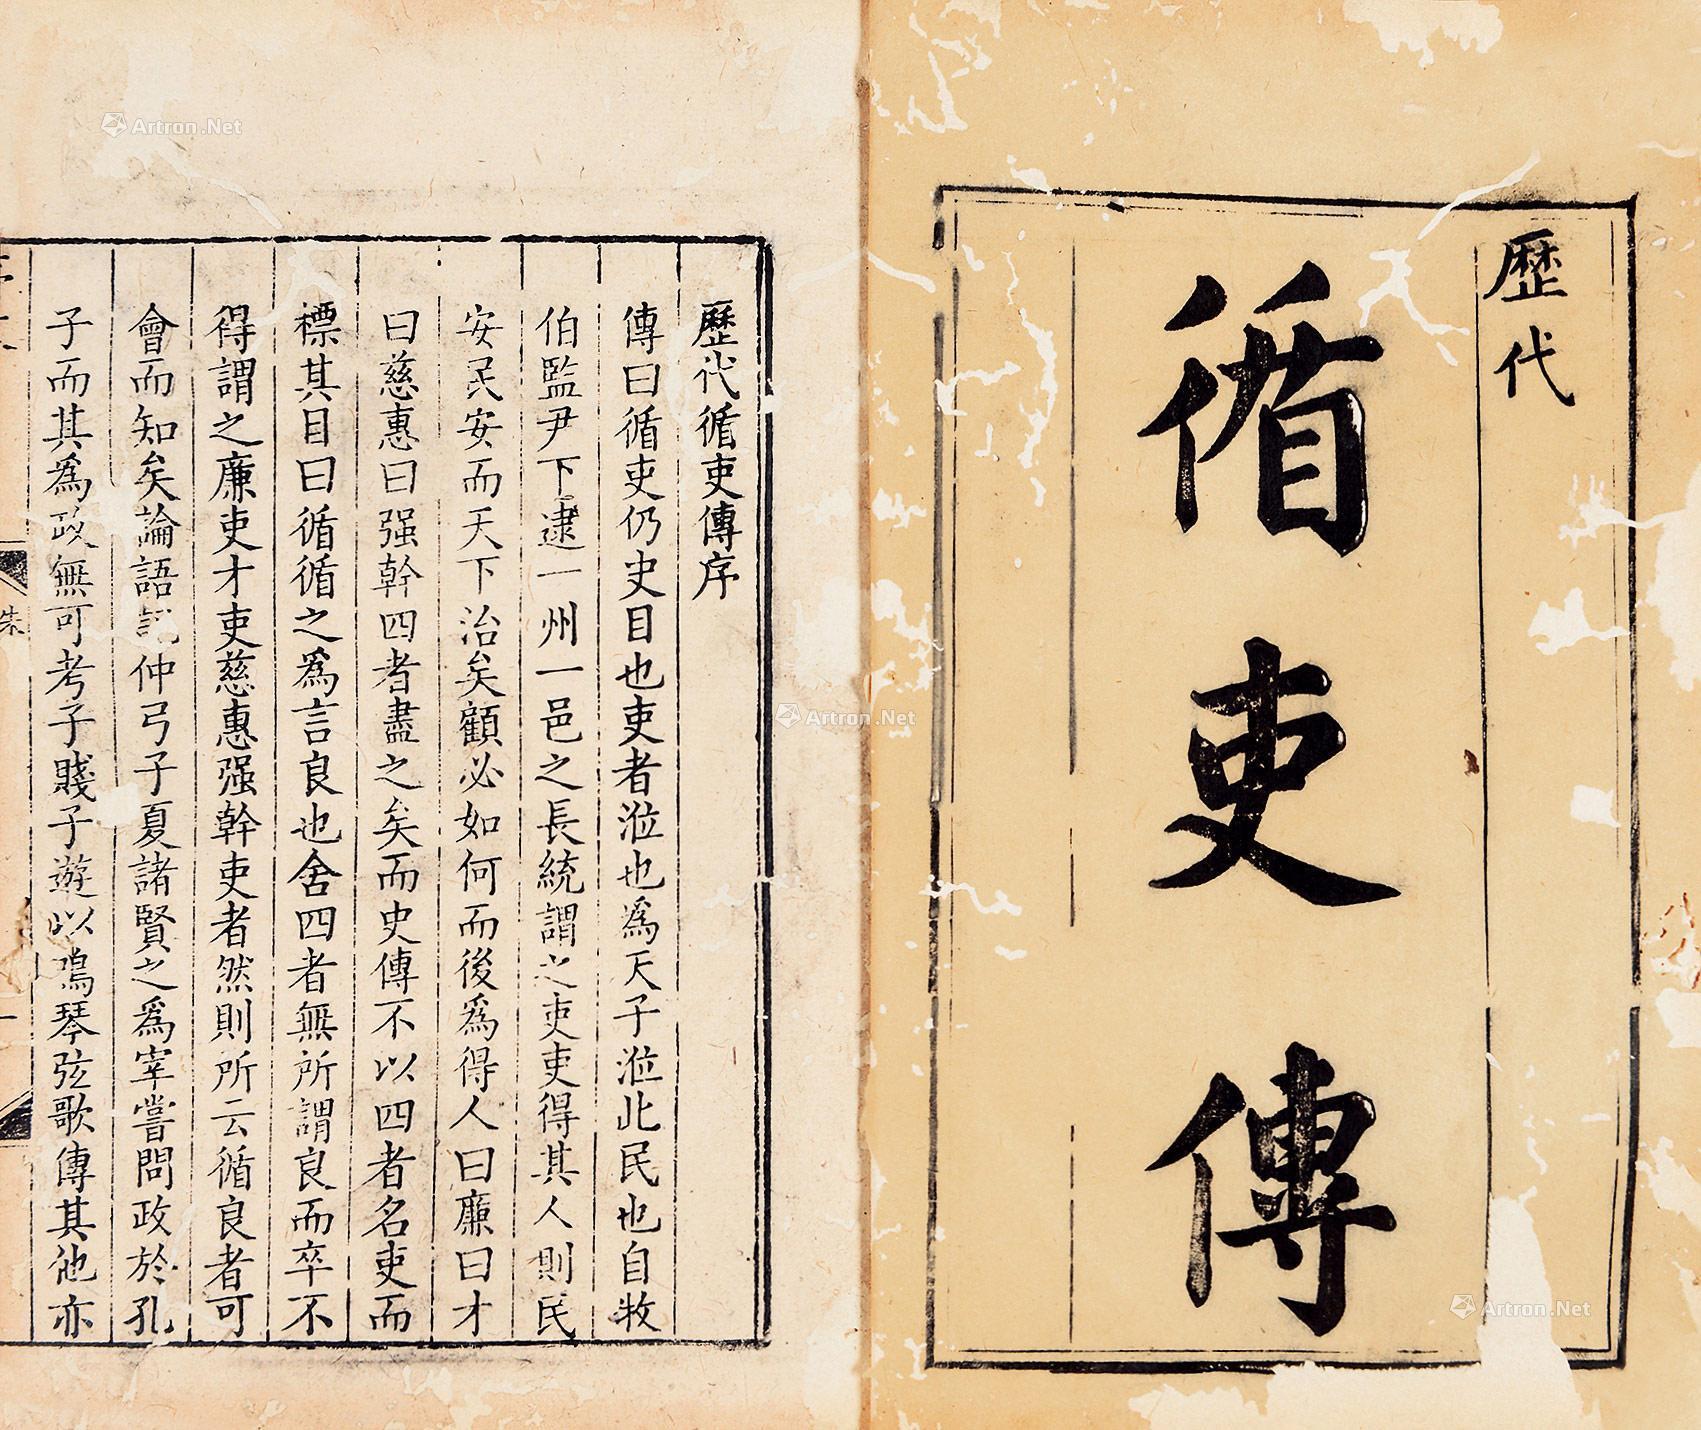 歷代
循吏傳
歷代循吏傳序
傳曰循吏仍史目也吏者涖也為天子涖此民也自牧
伯監尹下逮一州一邑之長統謂之吏吏得其人則民
安民安而天下治矣顧必如何而後爲得人曰廉曰才
曰慈惠曰强幹四者盡之矣而史傳不以四者名吏而
標其目曰循循之爲言良也舍四者無所謂良而卒不
得謂之廉吏才吏慈惠强幹吏者然則所云循良者可
會而知矣論語記仲弓子夏諸賢之爲宰嘗問政於孔
子而其爲政無可考子賤子遊以鳴琴弦歌傳其他亦
朱
一
Artron.Net
Artron.Net
Artron.Net